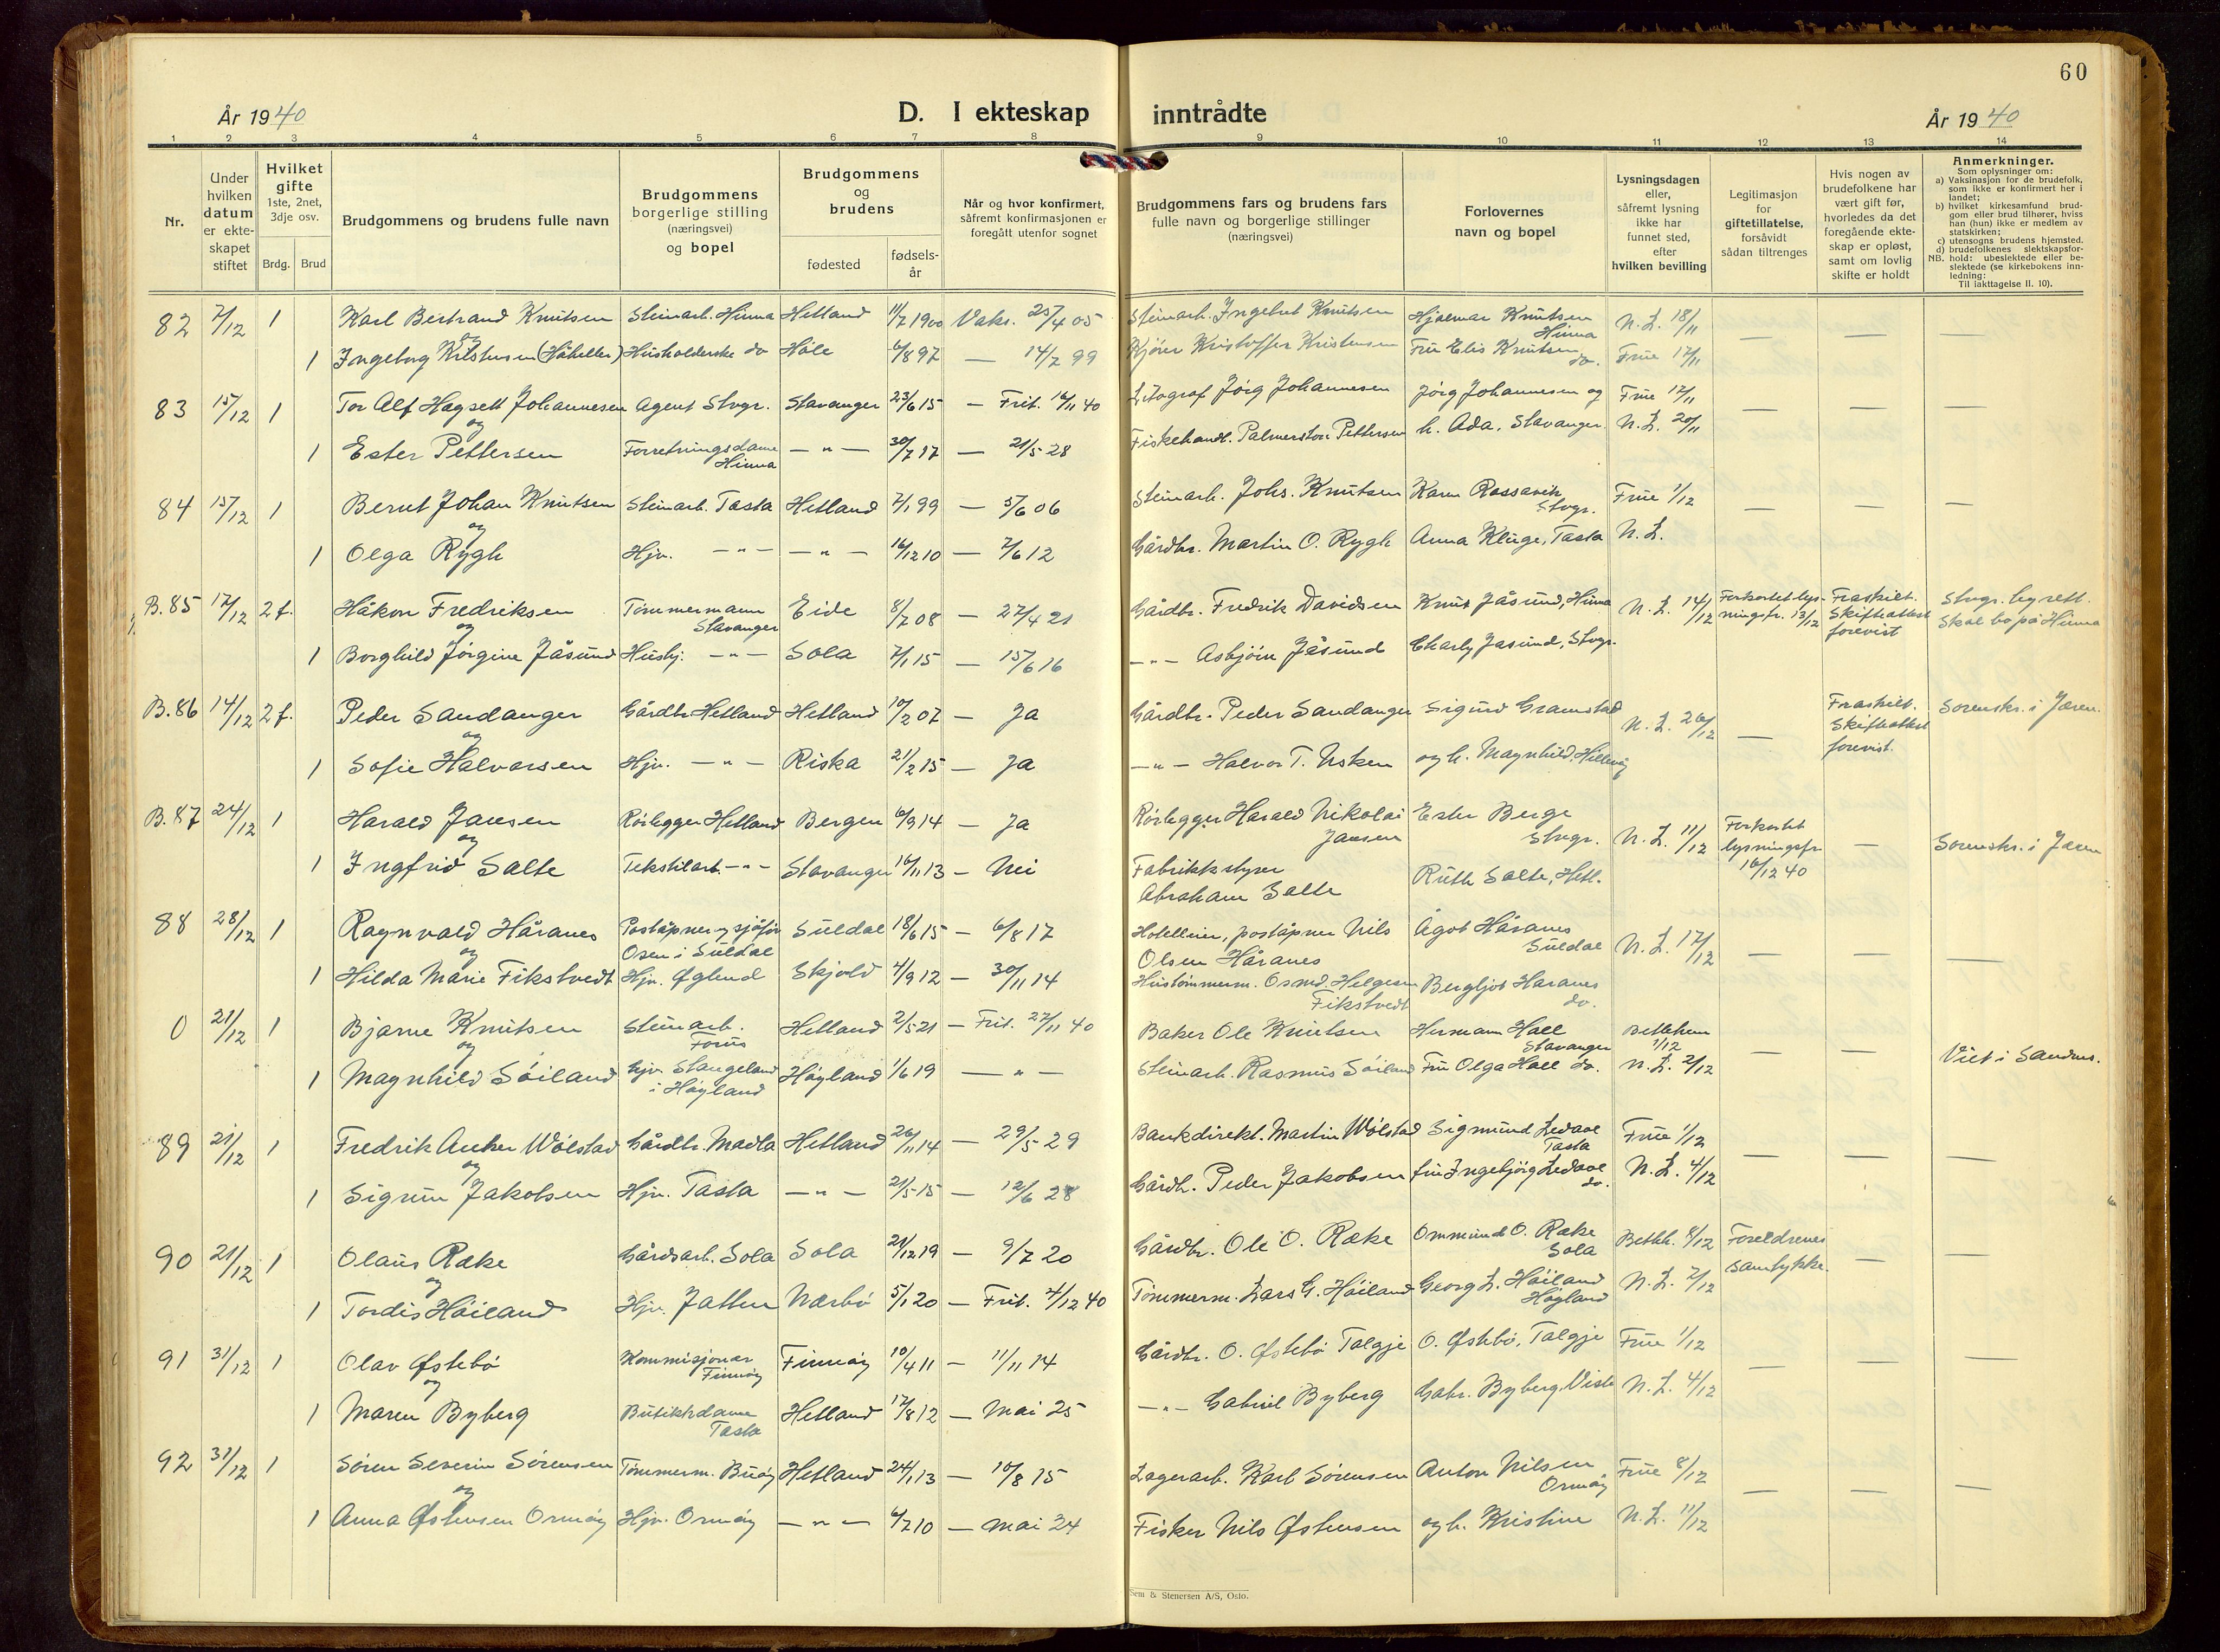 60
År 1940
D. I ekteskap inntrådte
År 1940
1 2 3 4 5 6 7 8 9 10 11 12 13 14
Nr.
Under hvilken datum er ekteskapet stiftet
Hvilket gifte 1ste, 2net, 3dje osv.
Brdg. Brud
Brudgommens og brudens fulle navn
Brudgommens borgerlige stilling (næringsvei) og bopel
Brudgommens og brudens
fødested
fødselsår
Når og hvor konfirmert, såfremt konfirmasjonen er foregått utenfor sognet
Brudgommens fars og brudens fars fulle navn og borgerlige stillinger (næringsvei)
Forlovernes navn og bopel
Lysningsdagen eller, såfremt lysning ikke har funnet sted, efter hvilken bevilling
Legitimasjon for giftetillatelse, forsåvidt sådan tiltrenges
Hvis nogen av brudefolkene har vært gift før, hvorledes da det foregående ekteskap er opløst, samt om lovlig skifte er holdt
Anmerkninger.
Som oplysninger om:
a) Vaksinasjon for de brudefolk, som ikke er konfirmert her i landet;
b) hvilket kirkesamfund brudgom eller brud tilhører, hviss han (hun) ikke er medlem av statskirken;
c) utensogns brudens hjemsted.
d) brudefolkenes slektskapsforhold: ubeslektede eller beslektede (se kirkebokens innledning:
NB.
Til iakttagelse II. 10).
82 7/12 1 Karl Bertrand Knutsen Steinarb. Hinna Hetland 11/7 1900 Vaks. 25/4 05 Steinarb. Ingebret Knutsen Hjalmar Knutsen Hinna N.L. 18/11 — — —
og
1 Ingeborg Kristensen (Håheller) Husholderske do Høle 6/8 97 — 14/7 99 Kristoffer Kristensen Fru Elis Knutsen do. Frue 17/11
83 15/12 1 Tor Alf Hagsett Johannesen Agent Stvgr. Stavanger 23/6 15 — Frit. 16/11 40 Litograf Jörg Johannesen Jörg Johannesen og Frue 17/11 — — —
og
1 Ester Pettersen Forretningsdame Hinna — " — 30/7 17 — 21/5 28 Fiskehandl. Palmerston Pettersen h. Ada, Stavanger N.L. 20/11
84 15/12 1 Bernt Johan Knutsen Steinarb. Tasta Hetland 7/1 99 — 5/6 06 Steinarb. Johs. Knutsen Karen Rossavik Stvgr. Frue 1/12 — — —
og
1 Olga Rygh Hjv. — " — — " — 16/12 10 — 7/6 12 Gårdbr. Martin O. Rygh Anna Kluge, Tasta N.L.
B.85 17/12 2 f. Håkon Fredriksen Tømmermann Stavanger Eide 8/7 08 — 27/4 21 Gårdbr. Fredrik Davidsen Knut Jåsund, Hinna N.L. 14/12 Forkortet lysningsfr. 13/12 Fraskilt. Skifteattest forevist Stvgr. byrett. Skal bo på Hinna
og
1 Borghild Jørgine Jåsund Hushj. — " — Sola 7/1 15 — 15/6 16 — " — Asbjörn Jåsund Charly Jasund, Stvgr.
B.86 14/12 2 f. Peder Sandanger Gårdbr Hetland Hetland 10/2 07 — Ja Gårdbr. Peder Sandanger Sigurd Gramstad N.L. 26/12 — Fraskilt. Skifteattest forevist. Sorenskr. i Jæren.
og
1 Sofie Halvorsen Hjv. — " — Riska 21/2 15 — Ja — " — Halvor T. Usken og h. Magnhild, Hillevåg
B.87 24/12 1 Harald Jansen Rörlegger Hetland Bergen 6/9 14 — Ja Rörlegger Harald Nikolai Jansen Ester Berge Stvgr. N.L. 11/12 Forkortet lysningsfr 16/12 40 — Sorenskr. i Jæren
og
1 Ingfrid Salte Tekstilarb. — " — Stavanger 16/11 13 — Nei Fabrikkstyrer Abraham Salte Ruth Salte, Hetl.
88 28/12 1 Ragnvald Håranes Poståpner og sjåfør Osen i Suldal Suldal 18/6 15 — 6/8 17 Hotelleier, poståpner Nils Olsen Håranes Ågot Håranes Suldal N.L. 17/12 — — —
og
1 Hilda Marie Fikstvedt Hjv. Øglend Skjold 4/9 12 — 30/11 14 Hustømmerm. Osmd. Helgesen Fikstvedt Bergljot Haranes do.
0 21/12 1 Bjarne Knutsen Steinarb. Forus Hetland 2/5 21 — Frit. 27/11 40 Baker Ole Knutsen Hermann Hall Stavanger Betlehem 1/12 — — Viet i Sandnes.
og
1 Magnhild Söiland Hjv. Stangeland i Høyland Høyland 1/6 19 — " — Steinarb. Rasmus Söiland Fru Olga Hall do. N.L. 2/12
89 21/12 1 Fredrik Anker Wölstad Gårdbr. Madla Hetland 26/11 14 — 29/5 29 Bankdirekt. Martin Wölstad Sigmund Ledaal Tasta Frue 1/12 — — —
og
1 Sigrun Jakobsen Hjv. Tasta — " — 21/5 15 — 12/6 28 Gårdb. Peder Jakobsen fru Ingebjörg Ledaal do. N.L. 4/12
90 21/12 1 Olaus Ræke Gårdsarb. Sola Sola 21/12 19 — 9/7 20 Gårdbr. Ole O. Ræke Ommund O. Ræke Sola Bethh. 8/12 Foreldrenes samtykke. — —
og
1 Tordis Höiland Hjv. Jatten Nærbø 5/1 20 — Frit. 4/12 40 Tömmerm. Lars G. Höiland Georg L. Höiland Høyland N.L. 7/12
91 31/12 1 Olav Østebö Kommisjonær Finnöy Finnöy 10/4 11 — 11/11 14 Gårdbr. O. Østebö Talgje O. Østebö, Talgje Frue 1/12 — — —
og
1 Maren Byberg Butikkdame Tasta Hetland 17/8 12 — Mai 25 — " — Gabriel Byberg Gabr. Byberg, Viste N.L. 4/12
92 31/12 1 Sören Severin Sörensen Tömmerm. Buöy Hetland 24/1 13 — 10/8 15 Lagerarb. Karl Sörensen Anton Nilsen Ormöy Frue 8/12 — — —
og
1 Anna Østensen Ormöy Hjv. Ormöy — " — 6/7 10 — Mai 24 Fisker Nils Østensen og h. Kristine N.L. 11/12
Sem & Stenersen A/S, Oslo.